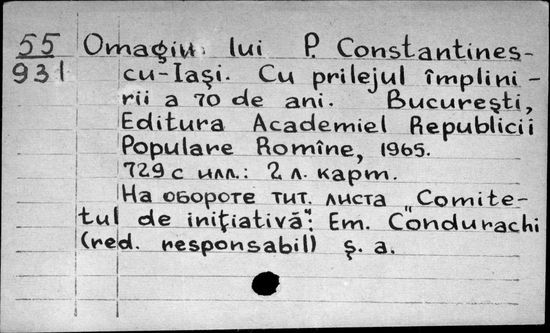 55
931
Omagiu lui P. Constantines-
cu-Iaşi. Cu prilejul împlini-
rii a 70 de ani. Bucureşti,
Editura Academiei Republicii
Populare Romîne, 1965.
729 с илл.: 2 л. карт.
На обороте тит. листа „Comite-
tul de iniţiativă": Em. Condurachi
(red. responsabil) ş. a.